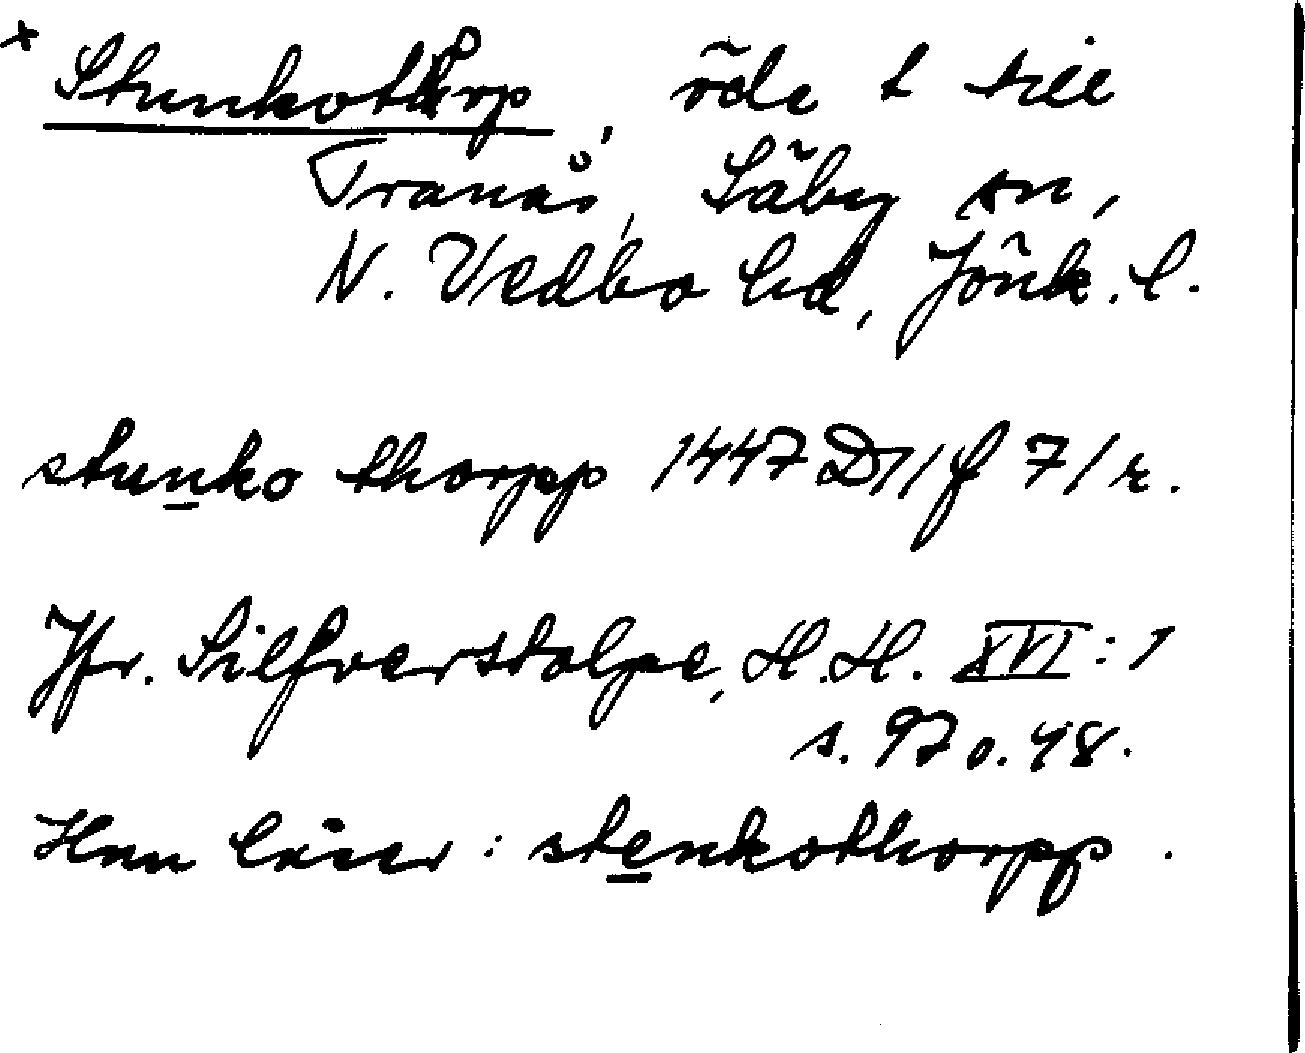 × Stunkotorp, öde t till
Tranås, Säby sn,
N. Vedbo hd, Jönk. l.
stunko thorpp 1447 D 11 f 71 r.
Jfr. Silfverstolpe, H.H. XVI:1
s. 97 o. 48.
Han läser: stenkothorpp.